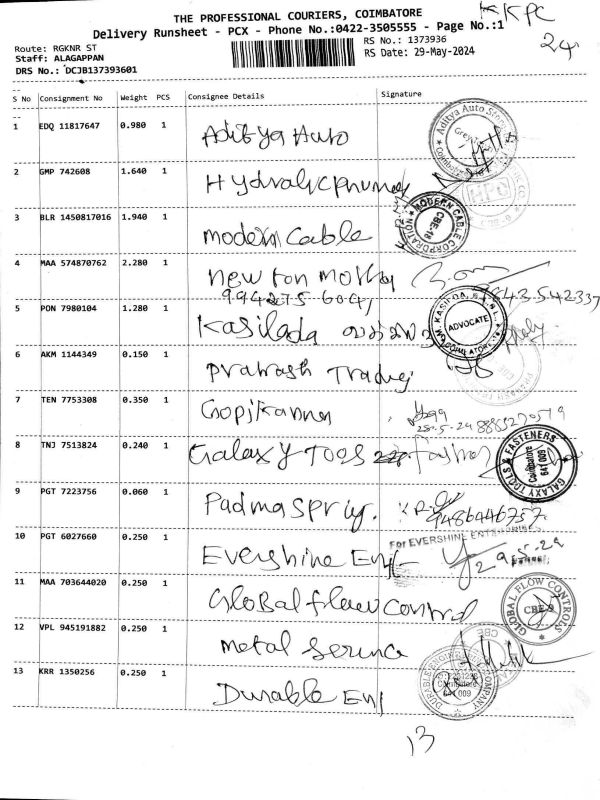 THE PROFESSIONAL COURIERS, COIMBATORE
KKPC
Delivery Runsheet - PCX - Phone No.:0422-3505555 - Page No.:1
24
Route: RGKNR ST
RS No.: 1373936
Staff: ALAGAPPAN
RS Date: 29-May-2024
DRS No.: DCJB137393601
S No Consignment No Weight PCS Consignee Details Signature
1 EDQ 11817647 0.980 1 Aditya Auto
Aditya Auto
2 GMP 742608 1.640 1
3 BLR 1450817016 1.940 1 modern Cable
MODERN CABLE CORPORATION
CBE-18
4 MAA 574870762 2.280 1 newton
5 PON 7980104 1.280 1 Kasilada
M. KASILDA,
ADVOCATE
COIMBATORE
6 AKM 1144349 0.150 1 prakash
7 TEN 7753308 0.350 1 Gopikannan
8 TNJ 7513824 0.240 1 Galaxy Tools
GALAXY TOOLS & FASTENERS
Coimbatore
641 009
9 PGT 7223756 0.060 1 Padmaspriy.
9486446757
10 PGT 6027660 0.250 1 Evershine Eng
For EVERSHINE
29-5-24
11 MAA 703644020 0.250 1 Global flow control
GLOBAL FLOW CONTROLS
CBE-9
12 VPL 945191882 0.250 1 metal
13 KRR 1350256 0.250 1 Durable Eng
Coimbatore
641 009
13